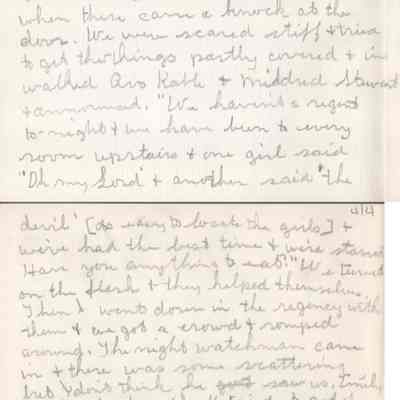 when there came a knock at the
door. We were scared stiff & tried
to get the things partly covered & in
walked Ava Kable & Mildred Stewart
& announced, "We haven't a regent
to-night & we have been to every
room upstairs & one girl said
"Oh my Lord' & another said 'the
4/4
devil' [ easy to locate the girls] &
we've had the best time & we're starved
Have you anything to eat?" We turned
on the flash & they helped themselves.
Then I went down in the regency with
them & we got a crowd & romped
around. The night watchman came
in & there was some scattering
but I don't think he saw us. Emily,